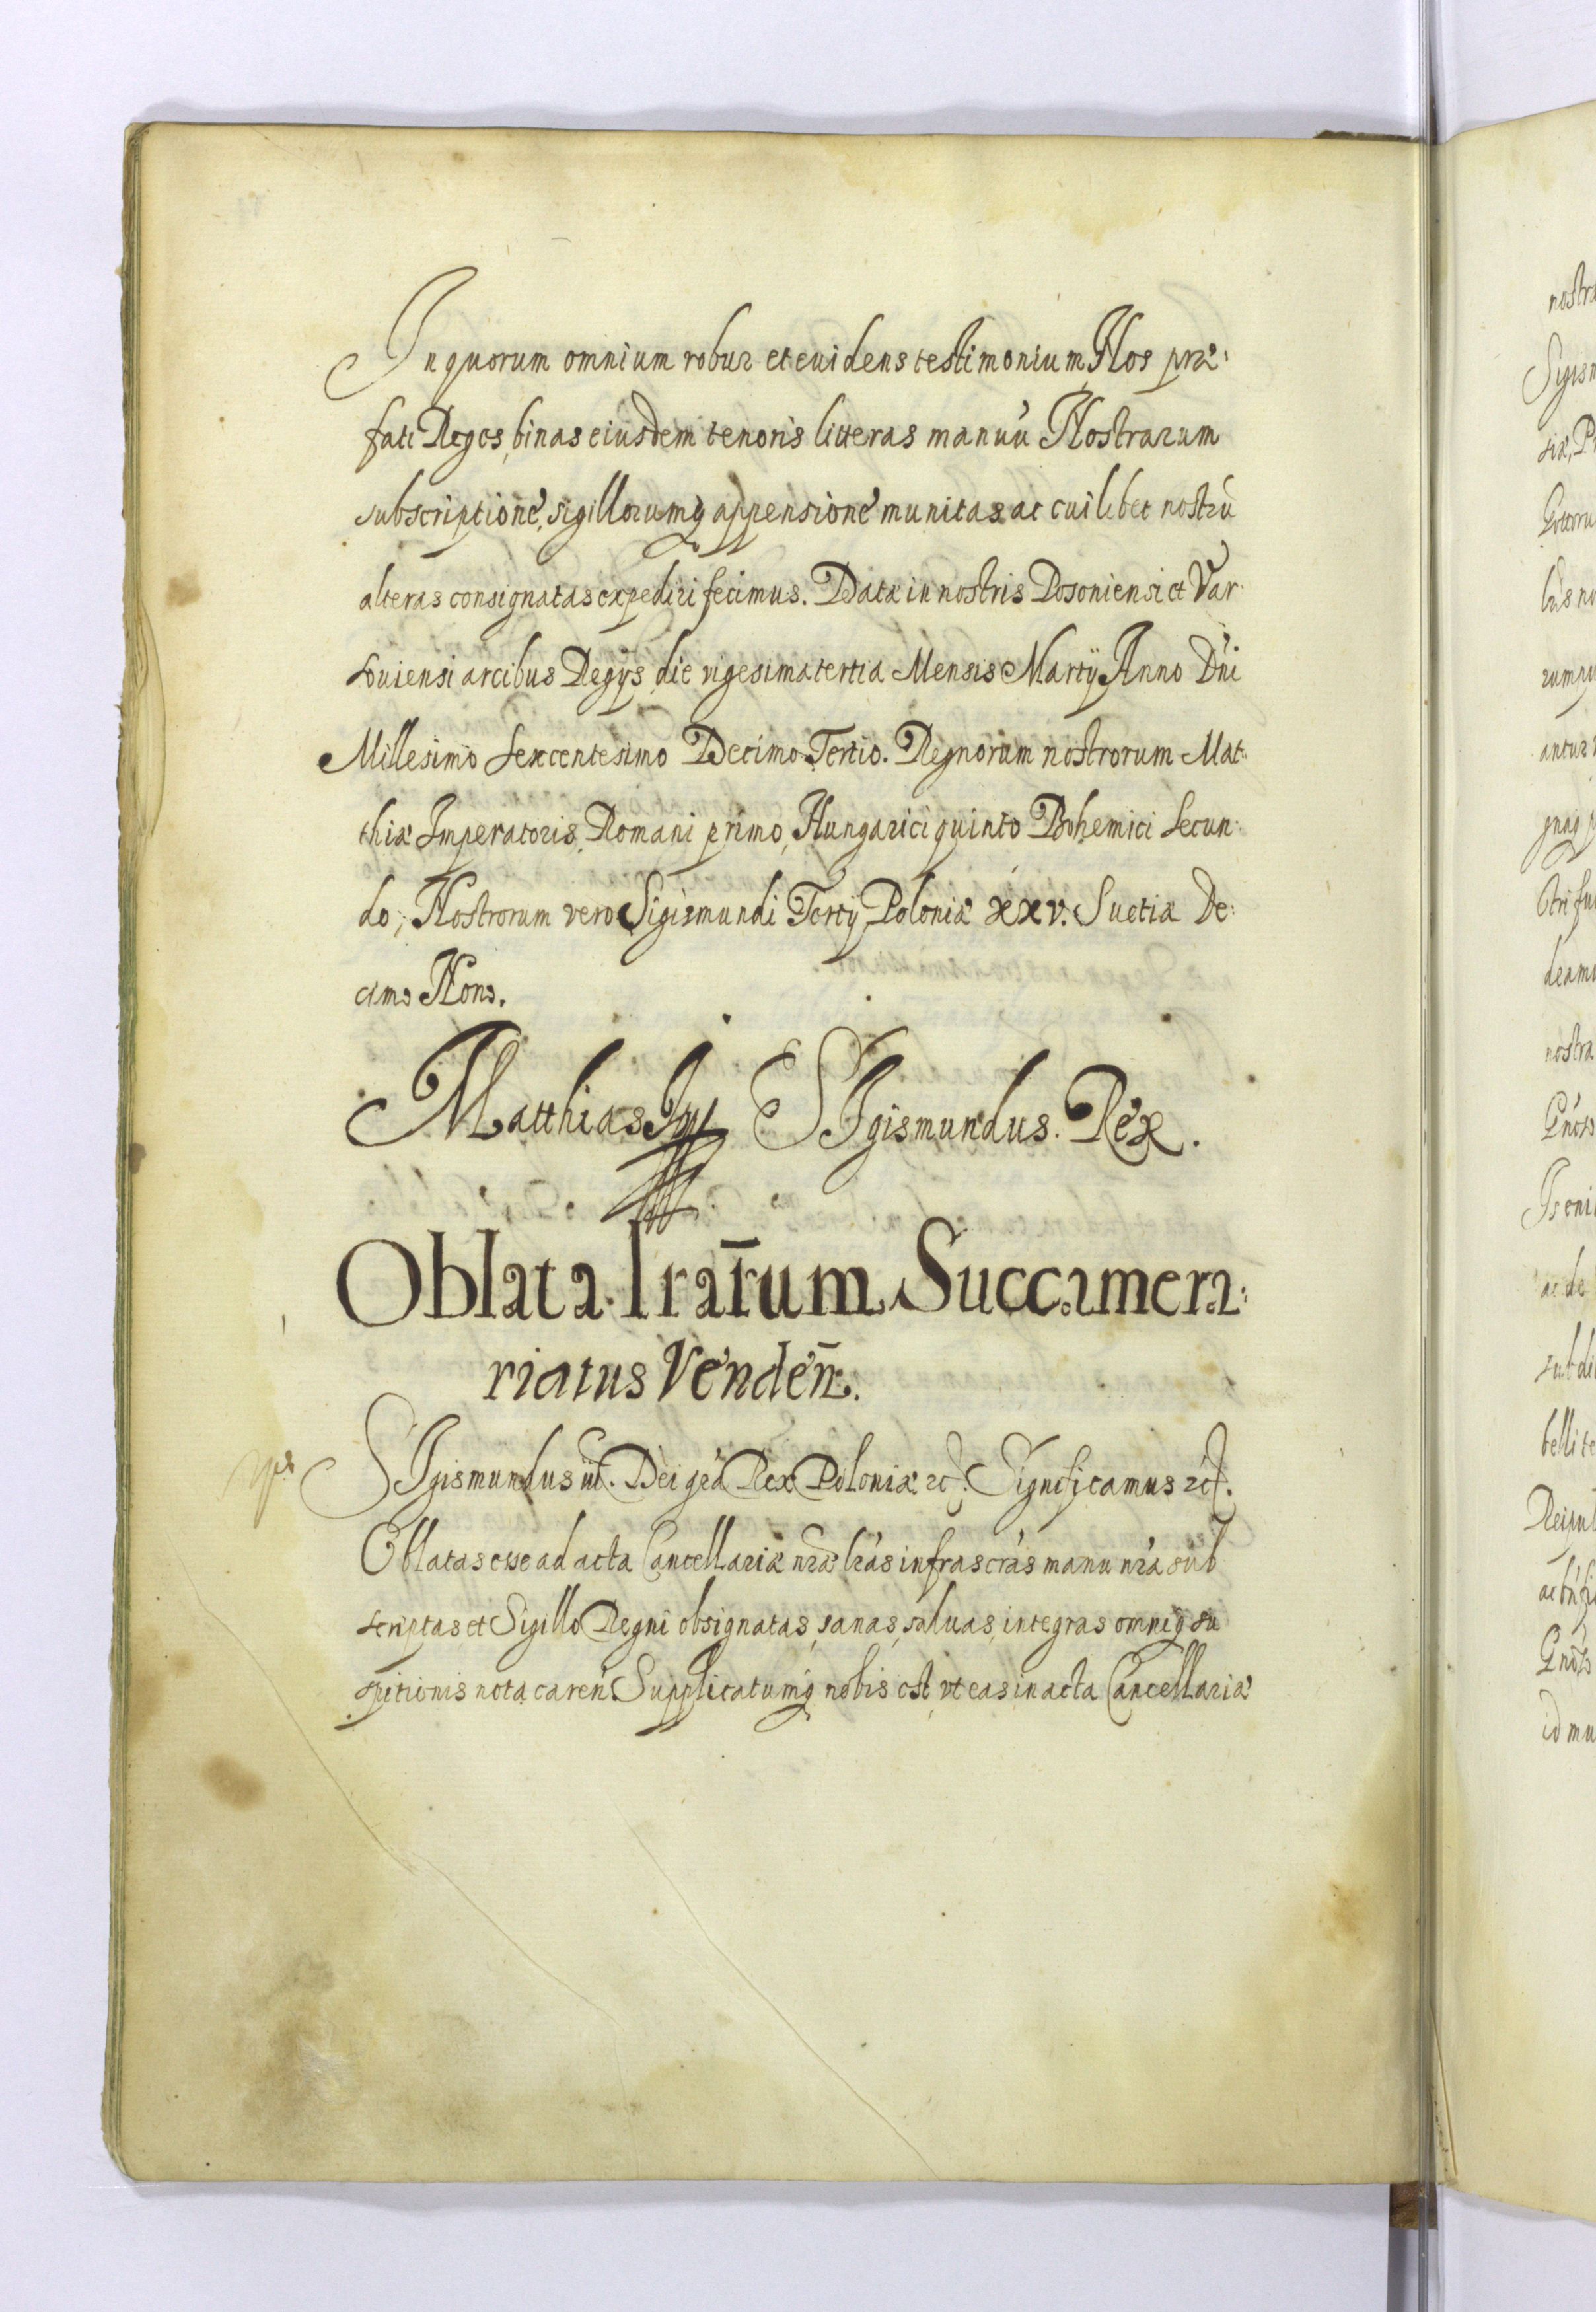 In quorum omnium robur et euidens testimonium, Nos præ:
fati Reges, binas eiusdem tenoris litteras manuũ Nostrarum
subscriptione, sigillorumq́ appensione munitas ac cuilibet nostrũ
alteras consignatas expediri fecimus. Datæ in nostris Posoniensi et Var:
souiensi arcibus Regijs die vigesima tertia Mensis Martij Anno Dńi
Millesimo Sexcentesimo Decimo Tertio. Regnorum nostrorum Mat:
thiæ Imperatoris, Romani primo, Hungarici quinto Bohemici Secun:
do; Nostrorum vero Sigismundi Tertij Poloniæ xxv. Suetiæ De:
cimo Nono.
Matthias Imp Sigismundus. Rex.
Oblata lrar̄um Succamera:
riatus Venden̄.
Sigismundus iii. Dei grá Rex Poloniæ etc: Significamus etc.
Oblatas esse ad acta Cancellariæ nræ lrás infrascrás manu nrá sub
scriptas et Sigillo Regni obsignatas, sanas, saluas, integras omniq́ su
spitionis nota careñ Supplicatumq́ nobis est, vt eas in acta Cancellariæ
nostra
Sigism
siæ, P
rumpu
antur
deamu
nostra
ac de
belli te
id mu